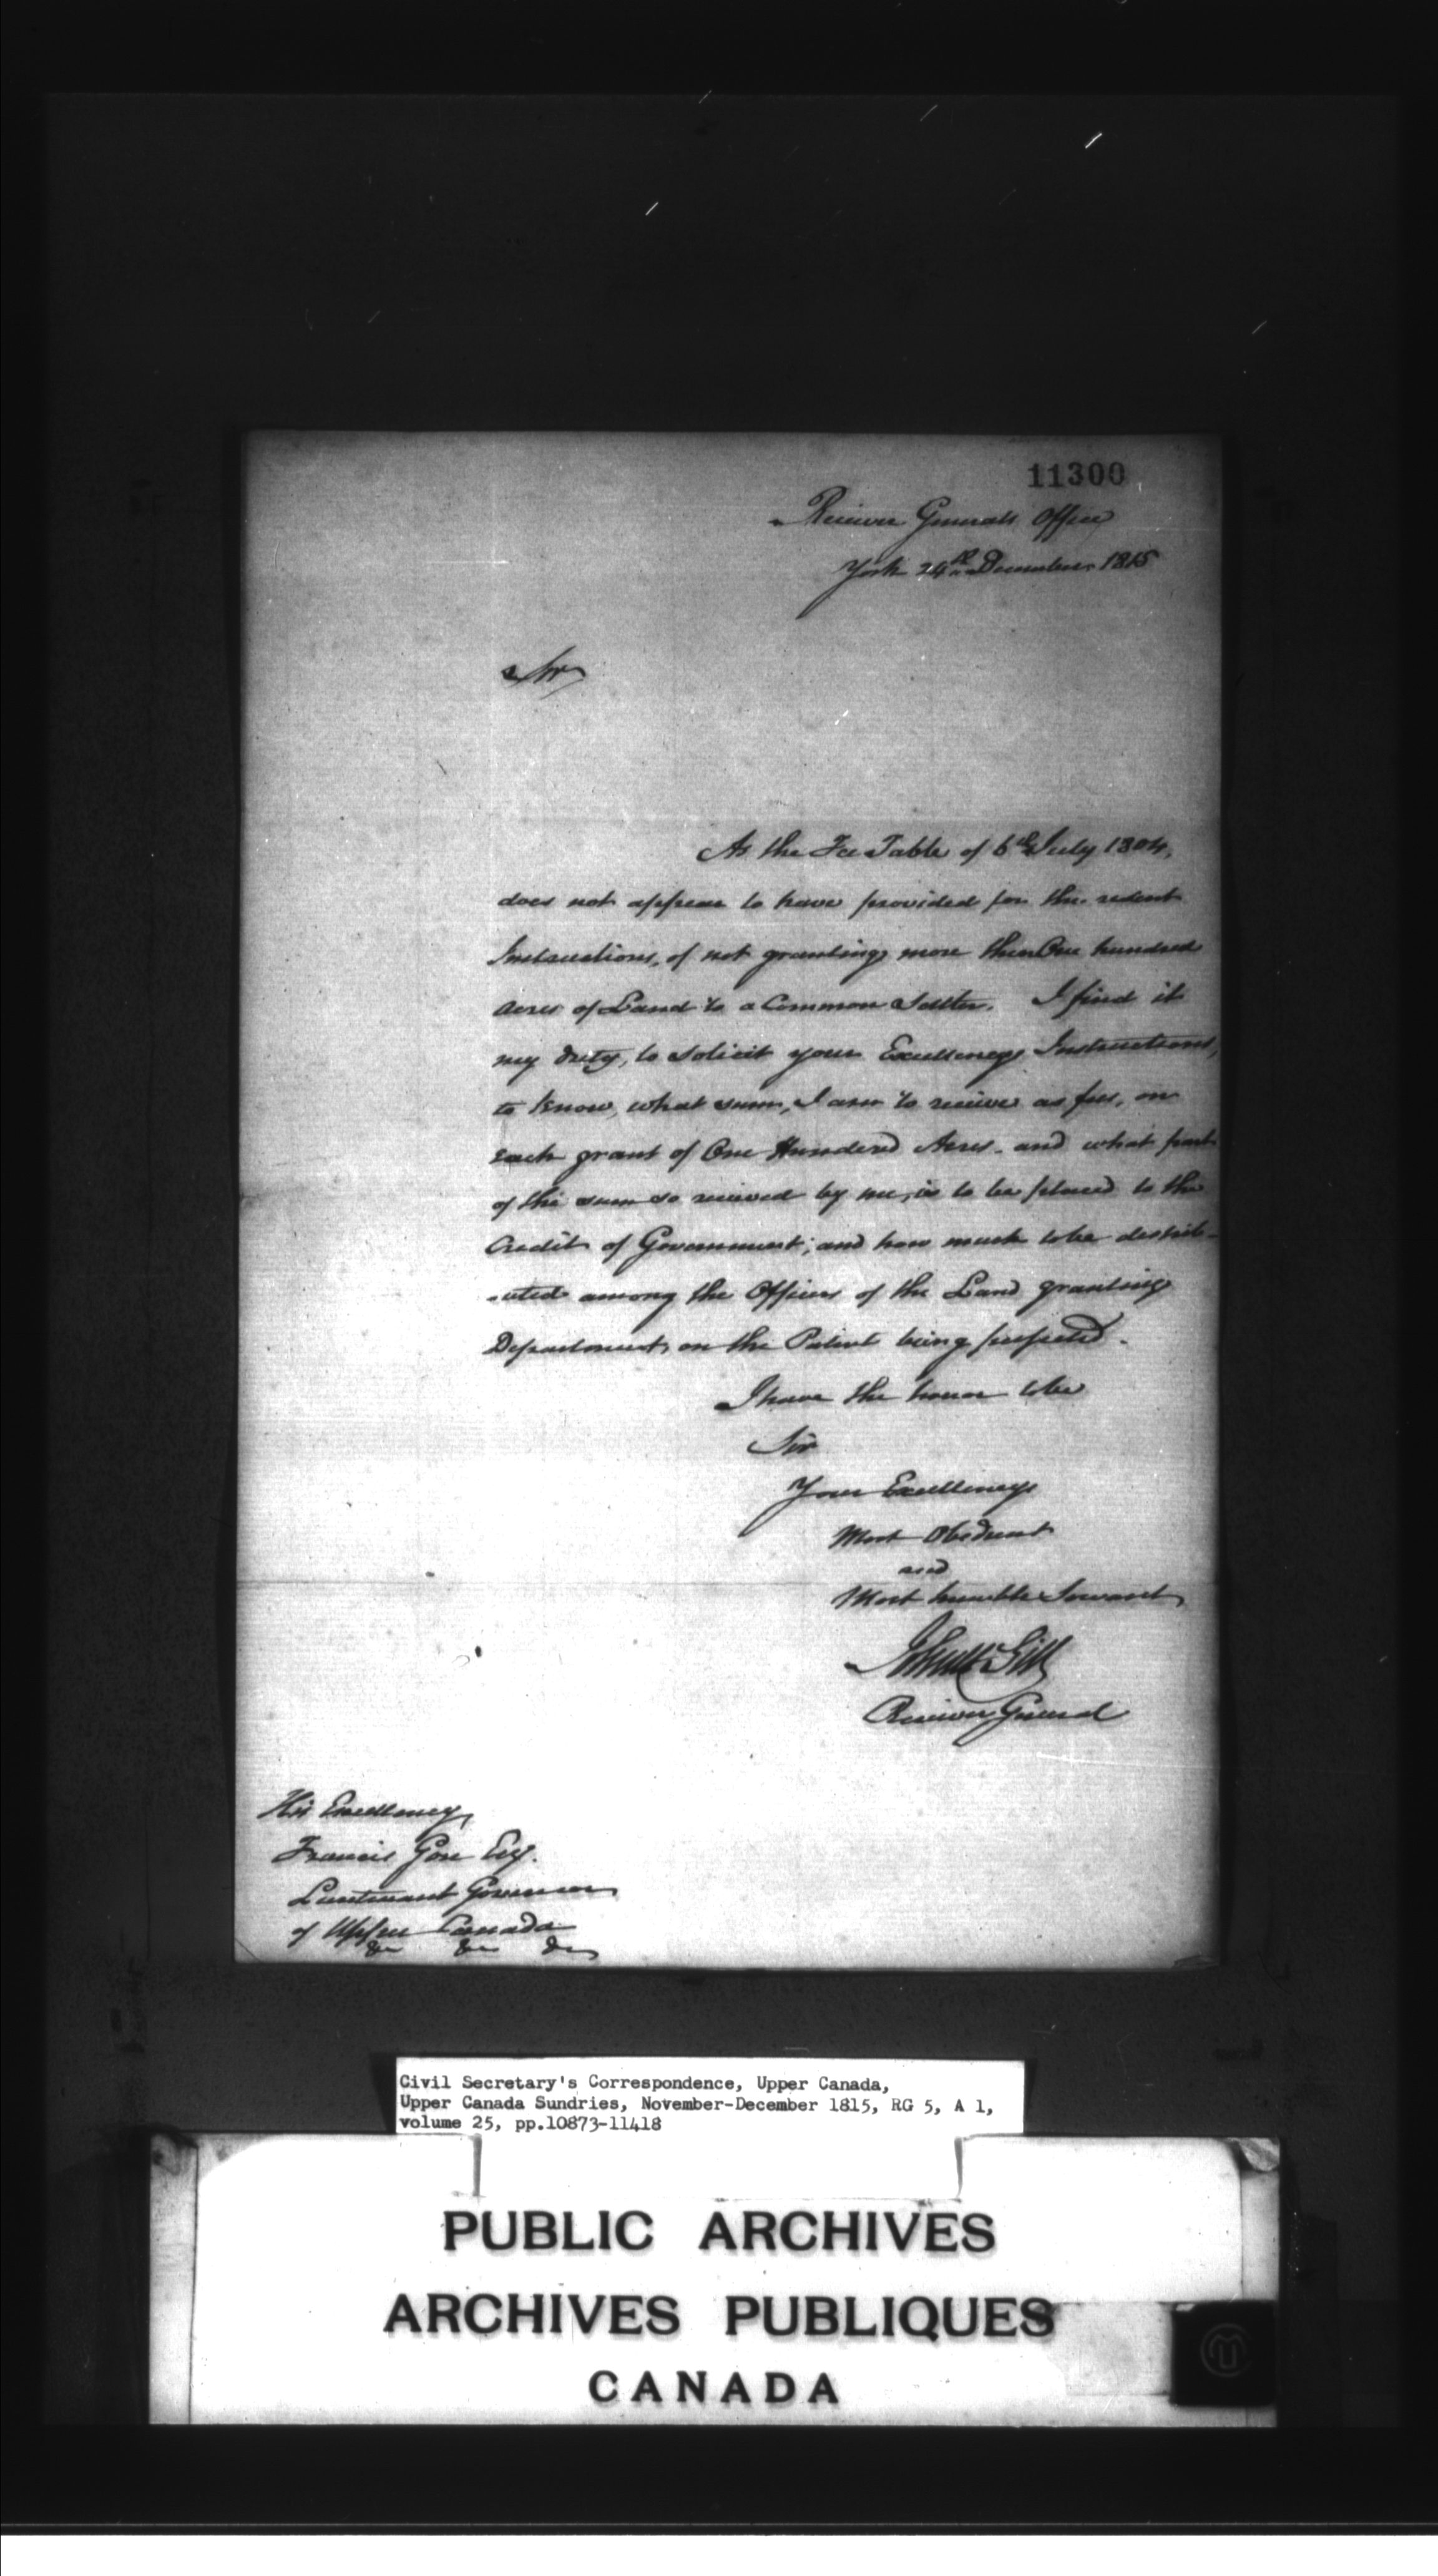 11300
Receiver Generals Office
York 24th December 1815
Sir
As the Fee Table of 6th July 1804,
does not appear to have provided for the recent
Instructions, of not granting more then One hundred
acres of Land to a Common Settler. I find it
my duty, to solicit your Excellencys Instructions,
to know, what sum, I am to receive as fees, on
each grant of One Hundred Acres. and what part
of the sum so received by me, is to be placed to the
Credit of Government; and how much to be distrib-
-uted among the Officers of the Land granting
Department, on the Patent being perfected.
I have the honor to be
Sir
Your Excellencys
Most Obedient
and
Most humble Servant
Receiver General
His Excellency
Francis Gore Esq.
Lieutenant Governor
of Upper Canada
&c &c &c
Civil Secretary's Correspondence, Upper Canada,
Upper Canada Sundries, November-December 1815, RG 5, A 1,
volume 25, pp.10873-11418
PUBLIC ARCHIVES
ARCHIVES PUBLIQUES
CANADA